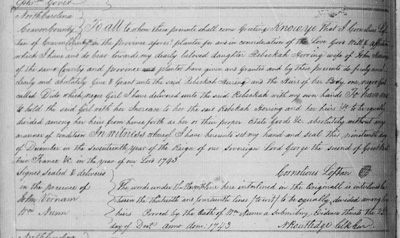 North Carolina
Craven County
To all to whom these presents shall come Greeting Know ye That I Cornelius Lof
tin of Craven County in the Province afores<sup>d</sup> planter for and in consideration of the Love Good Will & affection
which I have and do bear towards my dearly beloved daughter Rebeckah Herring wife of John Herring
of the same County and Province planter have given and granted and by these presents do freely
clearly and absolutely Give & Grant unto the said Rebeckah Herring and the Heirs of her Body one negro girl
called Dido which negro Girl I have delivered unto the said Rebeckah with my own hands To have and
to hold the said Girl with her Increase to her the said Rebekah Herring and her heirs to be equally
divided among her heirs from henceforth as her or their proper estate Goods &c absolutely without any
manner of condition In witness whereof I have hereunto set my hand and seal this nineteenth day
of December in the seventeenth year of the Reign of our Sovereign Lord George the second
France &c in the year of our Lord 1743
Signed sealed & delivered
in the presence of
Cornelius Loftin
The words under written
in the original is interlined
between the thirteenth and fourteenth lines (to wit) to be equally divided among her
heirs Proved by the Oath of
day of Dec<sup>r</sup> Anno dom. 1743